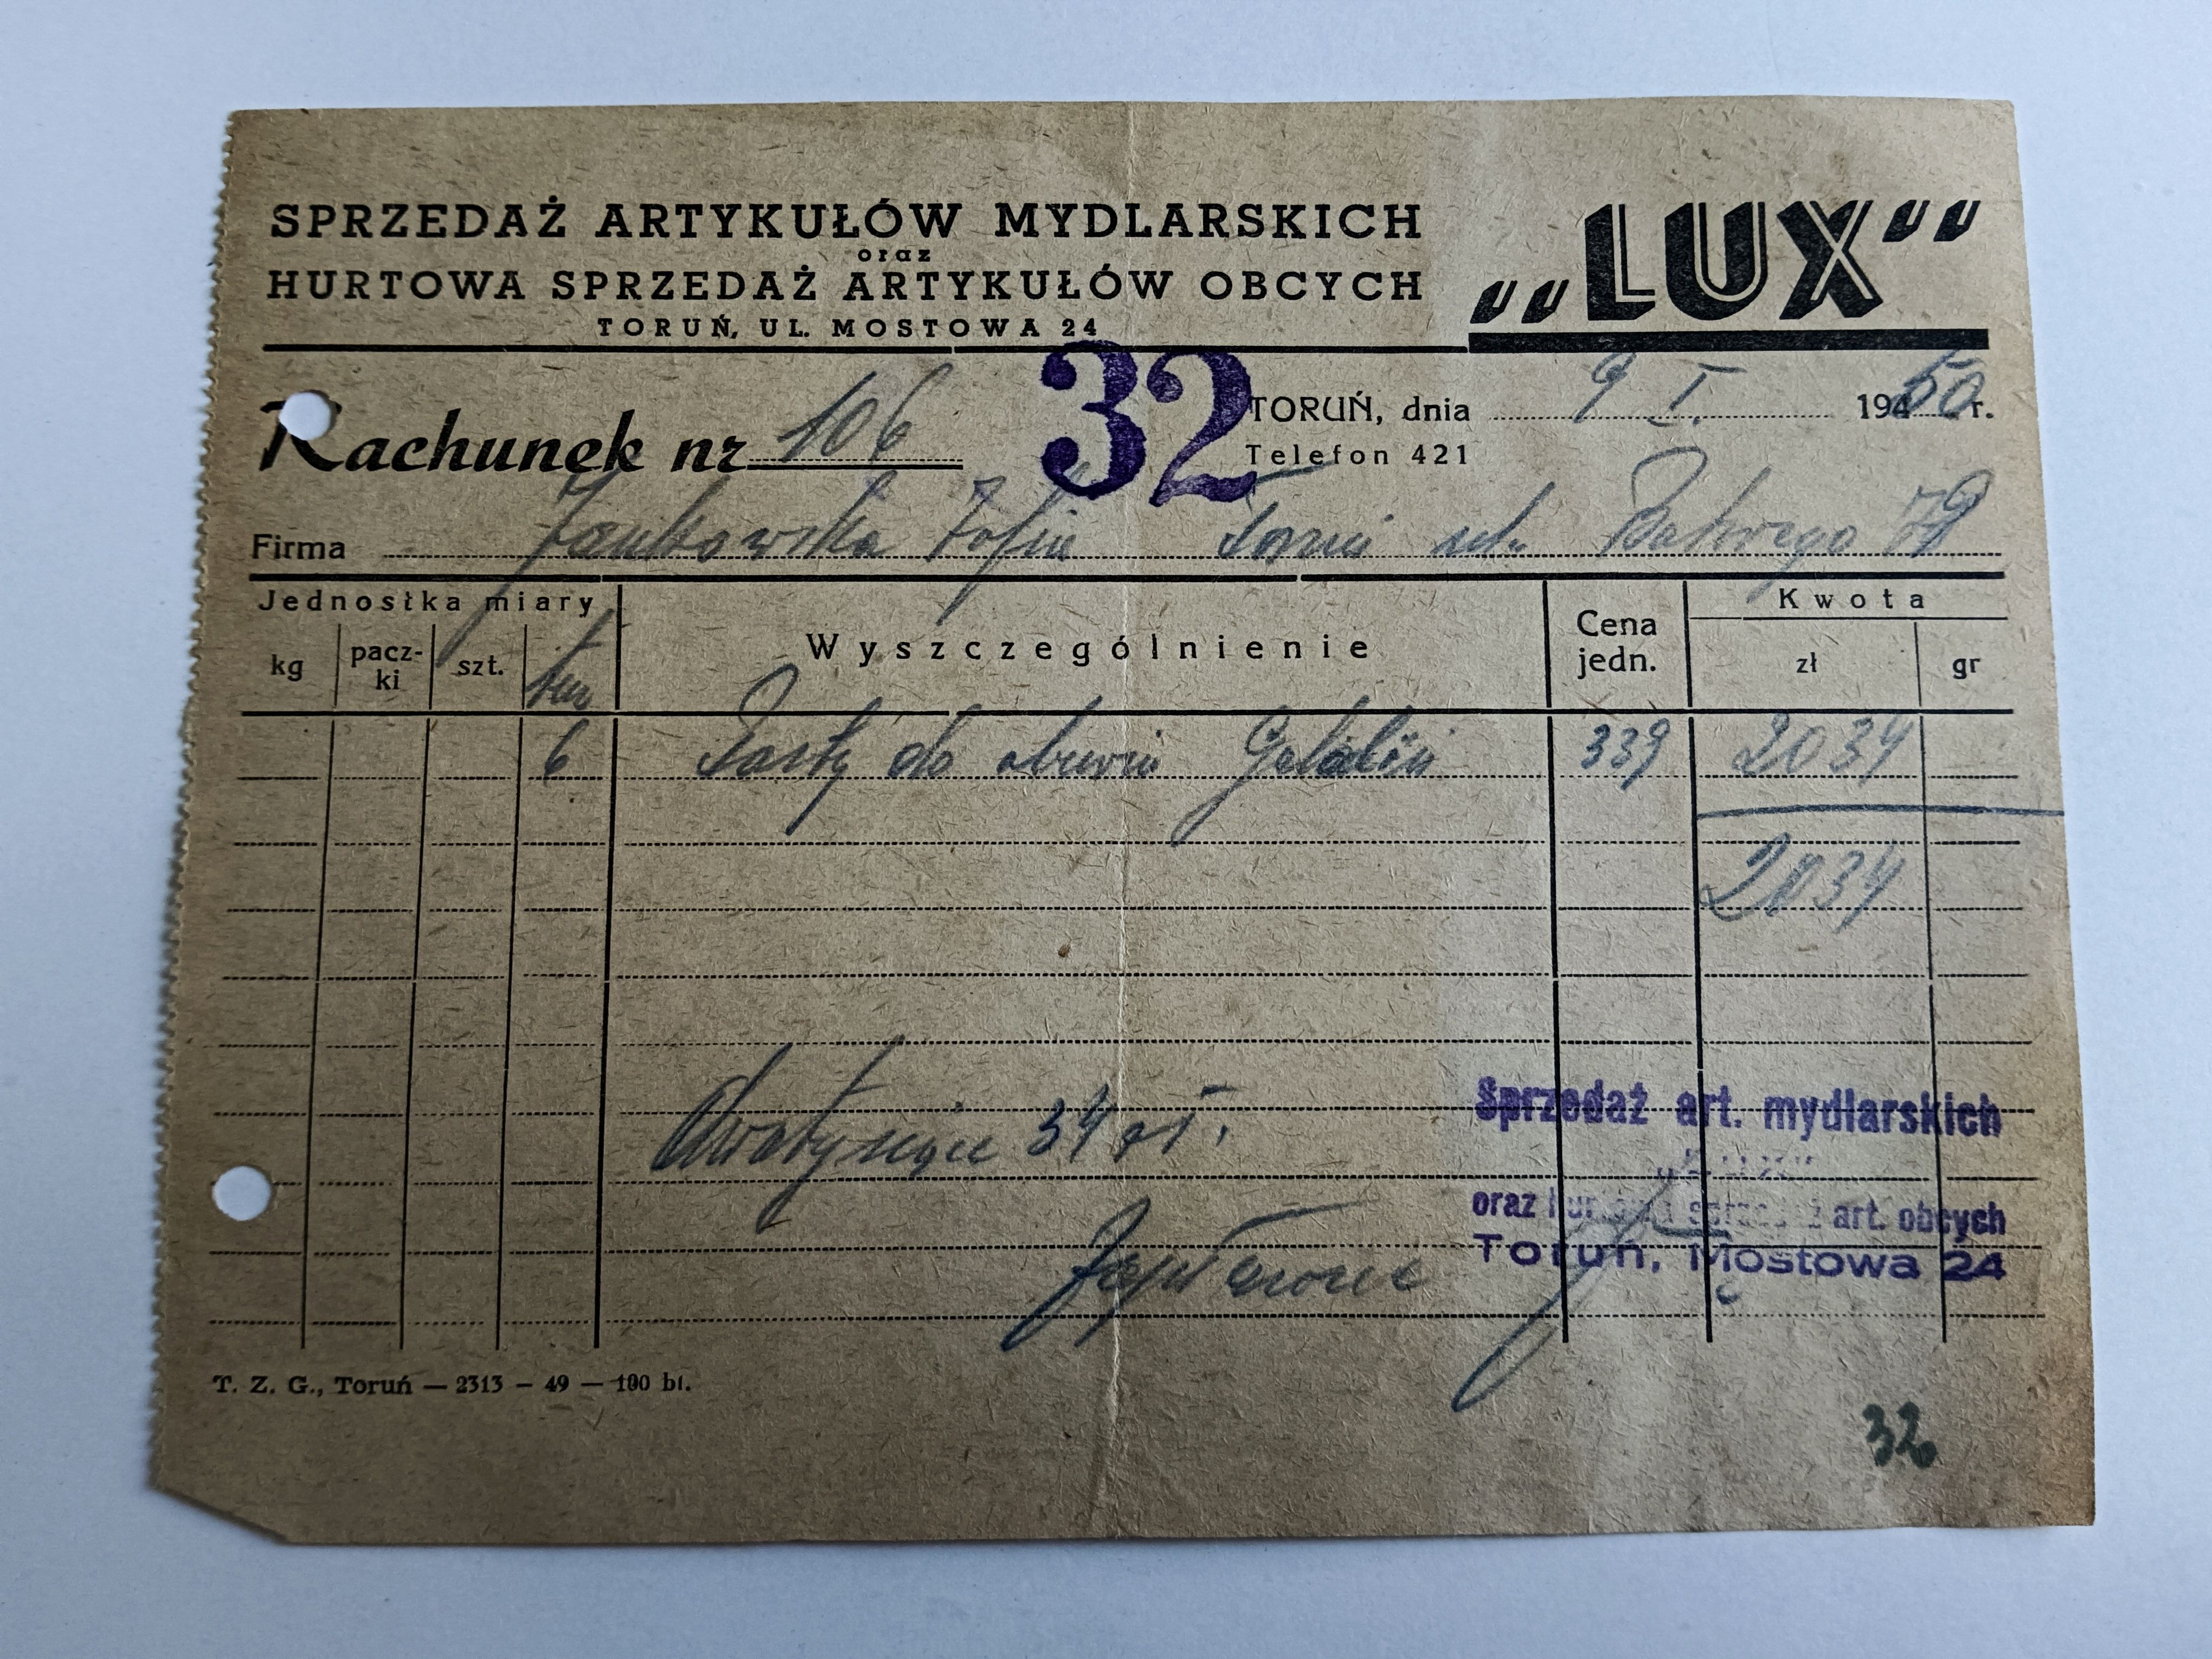 SPRZEDAŻ ARTYKUŁÓW MYDLARSKICH
oraz
HURTOWA SPRZEDAŻ ARTYKUŁÓW OBCYCH
TORUŃ, UL. MOSTOWA 24
„LUX"
Rachunek nr 106
32
TORUŃ, dnia 9 I. 1950 r.
Telefon 421
Firma Jankowska Zofia Toruń ul. 79
Jednostka miary Wyszczególnienie Cena jedn. Kwota
kg pacz-ki szt. tuz zł gr
6 Pasty do obuwia 339 2034
2034
34 zł.
Zapłacono
Sprzedaż art. mydlarskich
„LUX"
oraz hurtowa sprzedaż art. obcych
Toruń, Mostowa 24
T. Z. G., Toruń — 2313 — 49 — 100 bl.
32